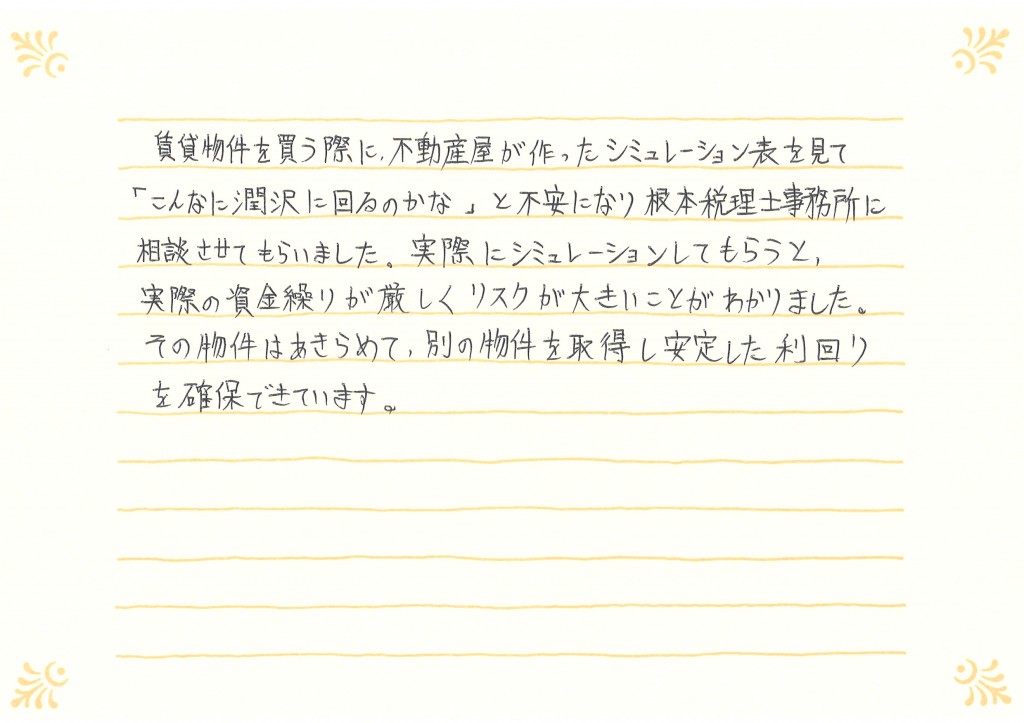 賃貸物件を買う際に、不動産屋が作ったシミュレーション表を見て
「こんなに潤沢に回るのかな」と不安になり根本税理士事務所に
相談させてもらいました。実際にシミュレーションしてもらうと、
実際の資金繰りが厳しくリスクが大きいことがわかりました。
その物件はあきらめて、別の物件を取得し安定した利回り
を確保できています。